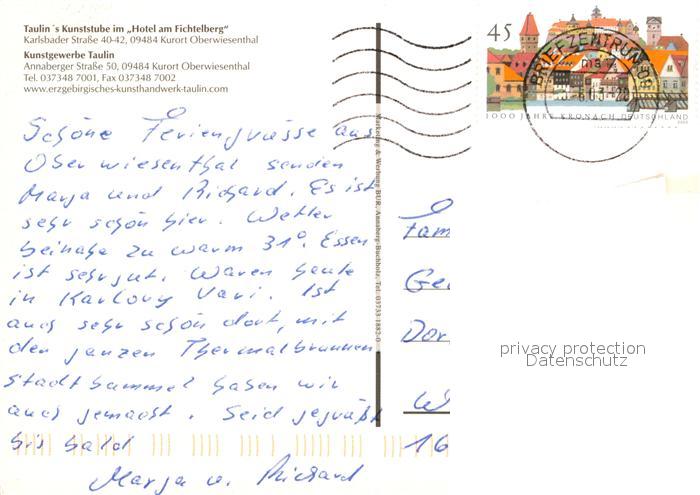 Taulin´s Kunststube im „Hotel am Fichtelberg“
Karlsbader Straße 40-42, 09484 Kurort Oberwiesenthal
Kunstgewerbe Taulin
Annaberger Straße 50, 09484 Kurort Oberwiesenthal
Tel. 037348 7001, Fax 037348 7002
www.erzgebirgisches-kunsthandwerk-taulin.com
45
BRIEFZENTRUM
1000 JAHRE KRONACH DEUTSCHLAND
Schöne Feriengrüsse aus
Oberwiesenthal senden
Marja und Richard. Es ist
sehr schön hier. Wetter
beinahe zu warm 31°. Essen
ist sehr gut. Waren heute
in Karlovy Vari. Ist
auch sehr schön dort, mit
den ganzen Thermalbrunnen
Stadtbummel haben wir
auch gemacht. Seid gegrüßt
bis bald
Marja u. Richard
Marketing & Werbung BUR, Annaberg-Buchholz, Tel. 03733-1882-0
Fam
Ge
Dor
W
16
privacy protection
Datenschutz